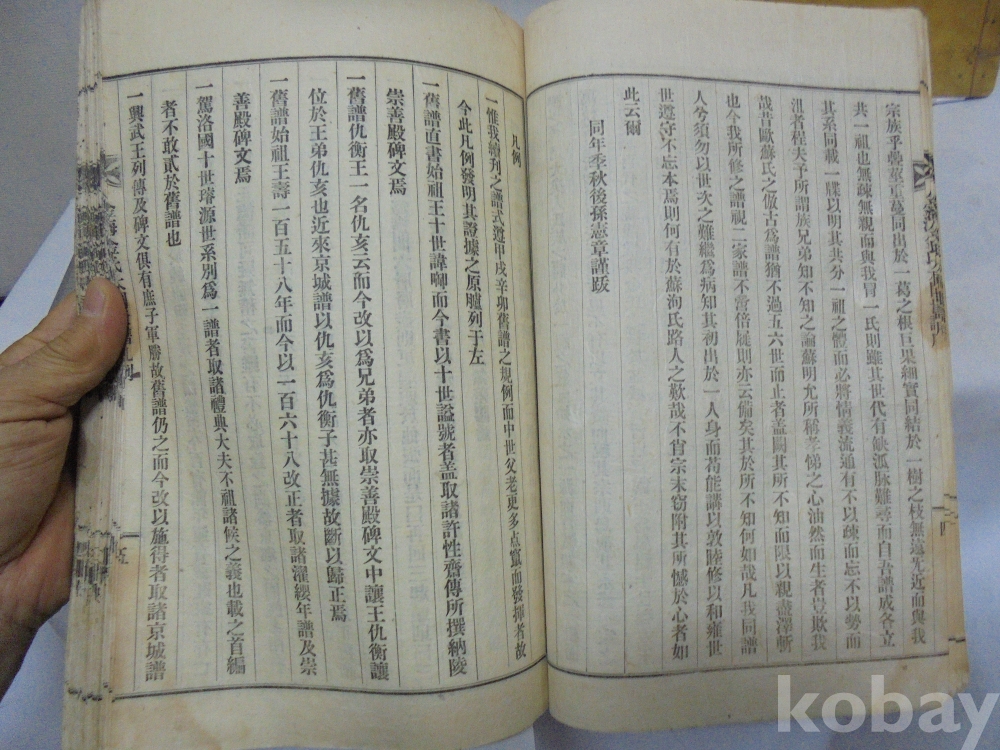 宗族乎藟藟重蔓同出於一葛之根巨果細實同結於一樹之枝無遠无近而與我
共一祖也無疎無親而與我冒一氏則雖其世代有缺派脉難尋而自吾譜成各立
其系同載一牒以明其共分一祖之體而必將情義流通有不以疎而忘不以勢而
沮者程夫子所謂族兄弟知不知之論蘇明允所稱孝悌之心油然而生者豈欺我
哉昔歐蘇氏之倣古爲譜猶不過五六世而止者盖闕其所不知而限以親盡澤斬
也今我所修之譜視二家譜不啻倍屣則亦云備矣其於所不知何如哉凡我同譜
人兮須勿以世次之難繼爲病知其初出於一人身而苟能講以敦睦修以和雍世
世遵守不忘本焉則何有於蘇洵氏路人之歎哉不肖宗末窃附其所憾於心者如
此云爾
同年季秋後孫憲章謹跋
四
凡例
一惟我續刊之譜式遵甲戌辛卯舊譜之規例而中世父老更多点竄而發揮者故
今此凡例發明其證據之原臚列于左
一舊譜直書始祖王十世諱啣而今書以十世謚號者盖取諸許性齋傳所撰納陵
崇善殿碑文焉
一舊譜仇衡王一名仇亥云而今改以爲兄弟者亦取崇善殿碑文中讓王仇衡讓
位於王弟仇亥也近來京城譜以仇亥爲仇衡子甚無據故斷以歸正焉
一舊譜始祖王壽一百五十八年而今以一百六十八改正者取諸濯纓年譜及崇
善殿碑文焉
一駕洛國十世璿源世系別爲一譜者取諸禮典大夫不祖諸候之義也載之首編
者不敢貳於舊譜也
一興武王列傳及碑文俱有庶子軍勝故舊譜仍之而今改以施得者取諸京城譜
五
kobay